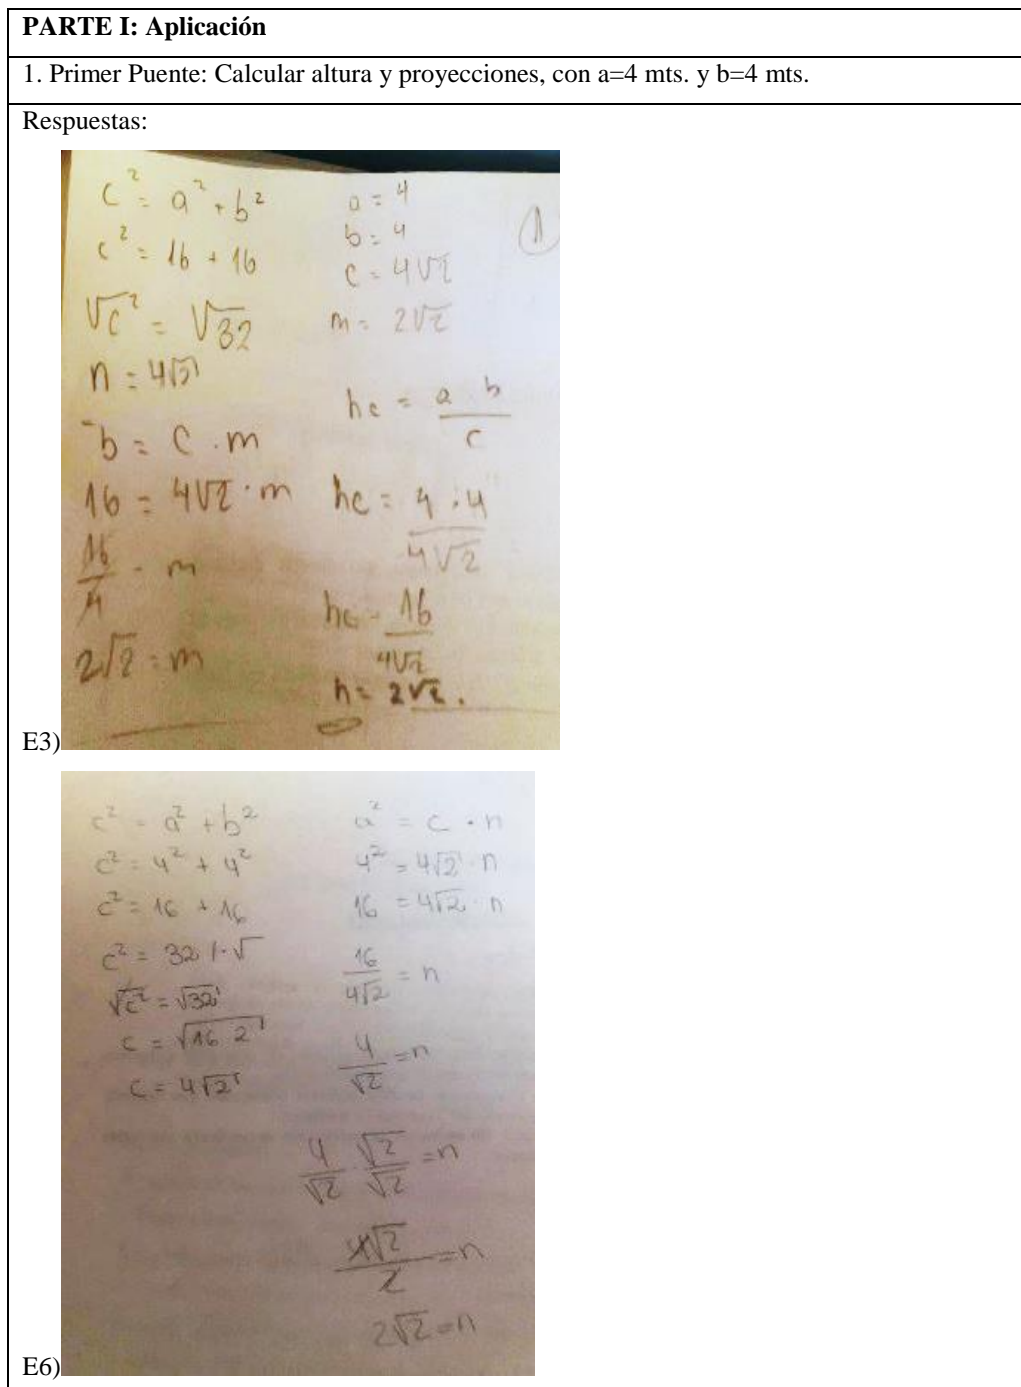 PARTE I: Aplicación
1. Primer Puente: Calcular altura y proyecciones, con a=4 mts. y b=4 mts.
Respuestas:
c² = a² + b²
c² = 16 + 16
√c² = √32
n = 4√2
b = c · m
16 = 4√2 · m
16/4 = m
2√2 = m
a = 4
b = 4
c = 4√2
m = 2√2
hc = a b / c
hc = 4 · 4 / 4√2
hc = 16 / 4√2
h = 2√2.
1
E3)
c² = a² + b²
c² = 4² + 4²
c² = 16 + 16
c² = 32 /·√
√c² = √32
c = √16 2
c = 4√2
a² = c · n
4² = 4√2 · n
16 = 4√2 · n
16 / 4√2 = n
4 / √2 = n
4/√2 · √2/√2 = n
4√2 / 2 = n
2√2 = n
E6)